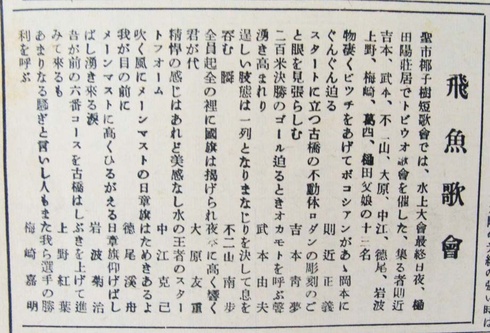 飛魚歌會
聖市椰子樹短歌會では、水上大會最終日夜、樋
田陽莊居でトビウオ歌會を催した、集る者則近
吉本、武本、不二山、大原、中江、德尾、岩波
上野、梅崎、葛四、樋田父娘の十三名
物凄くピツチをあげてボコシアンがあゝ岡本に
ぐんぐん迫る　則近正義
スタートに立つ古橋の不動体ロダンの彫刻のご
と眼を見張らしむ　吉本靑夢
二百米決勝のゴール迫るときオカモトを呼ぶ聲
湧き高まれり　武本由夫
逞しい肢態は一列となりまなじりを決して息を
呑む一瞬　不二山南步
全員起全の裡に國旗は揭げられ夜に高く響く
君が代　大原友重
精悍の感じはあれど美感なし水の王者のスター
トフオーム　中江克己
吹く風にメーンマストの日章旗はためきあるよ
我が目の前に　德尾溪舟
メーンマストに高くひるがえる日章旗仰げばし
ばし湧き來る淚　岩波菊治
吾が前の六番コースを古橋はしぶきを上げて進
みて來るも　上野紅葉
あまりなる騷ぎと言いし人もまた我ら選手の勝
利を呼ぶ　梅崎嘉明